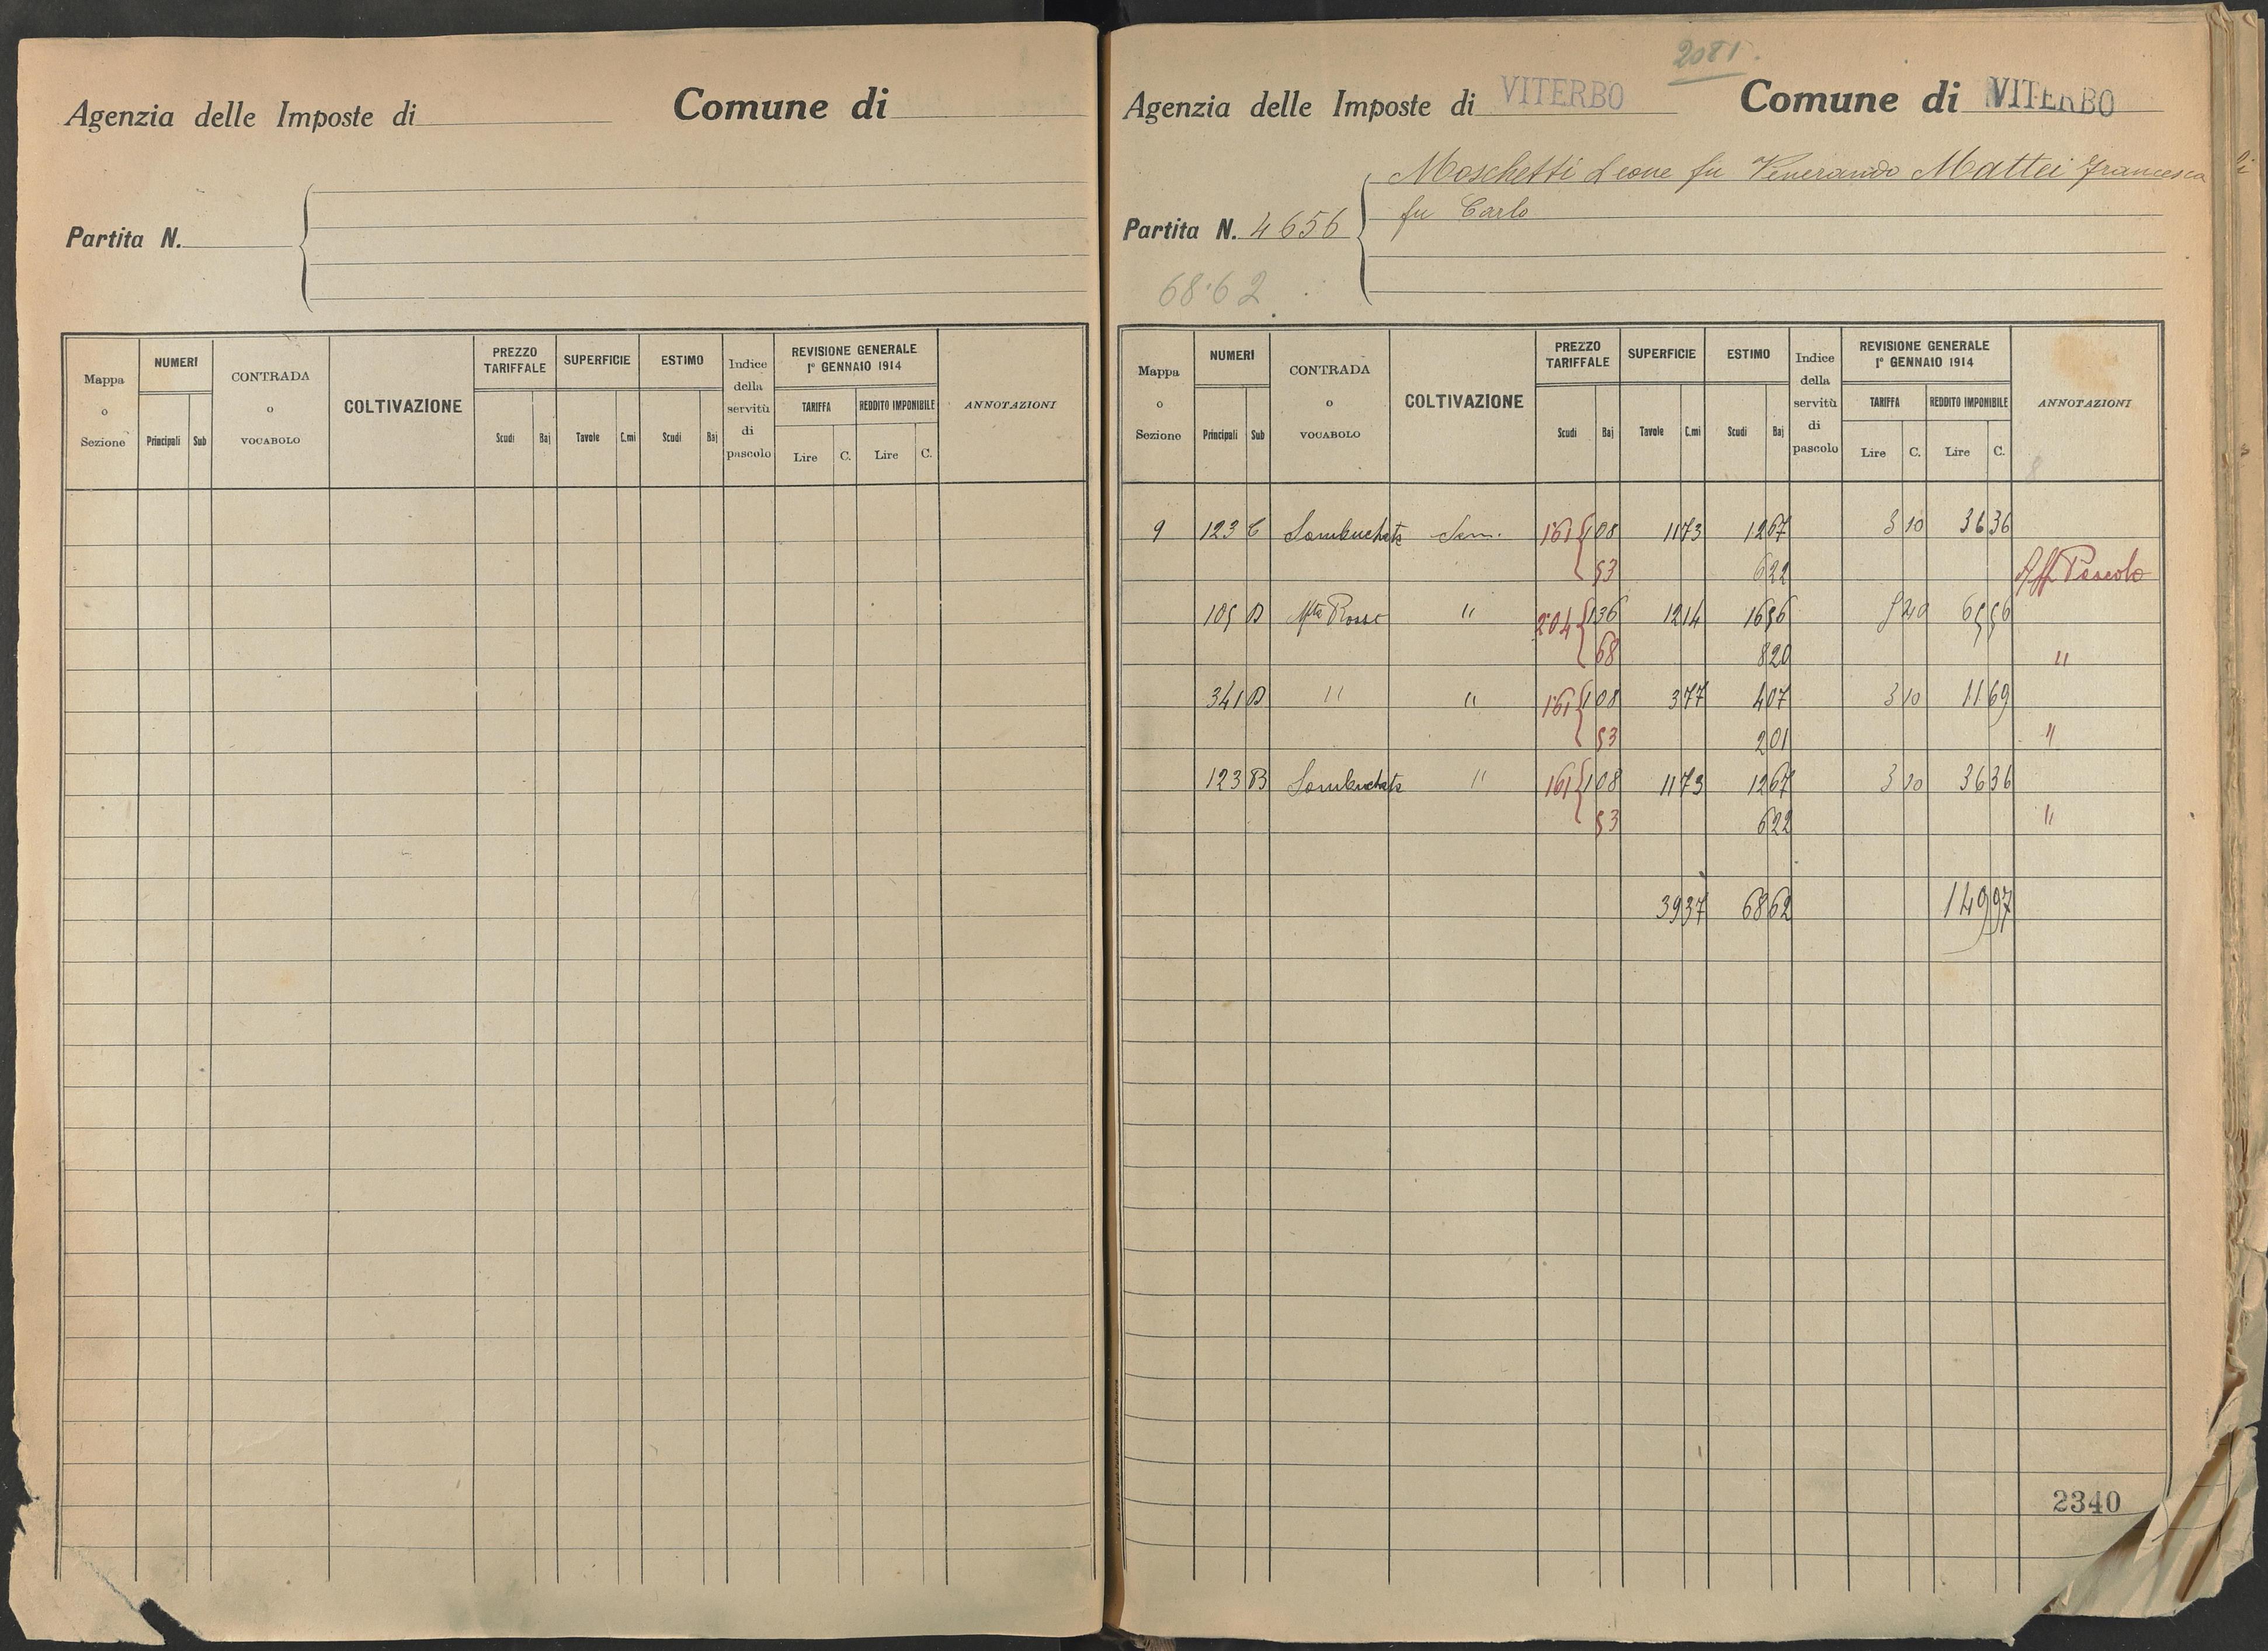 Agenzia delle Imposte di Comune di
Partita N.
Mappa o Sezione NUMERI Principali Sub CONTRADA o VOCABOLO COLTIVAZIONE PREZZO TARIFFALE Scudi Baj SUPERFICIE Tavole C.mi ESTIMO Scudi Baj Indice della servitù di pascolo REVISIONE GENERALE 1° GENNAIO 1914 TARIFFA Lire C. REDDITO IMPONIBILE Lire C. ANNOTAZIONI
2081.
Agenzia delle Imposte di VITERBO Comune di VITERBO
Moschetti Leone fu Venerando Mattei Francesca
Partita N. 4656 fu Carlo
68.62
Mappa o Sezione NUMERI Principali Sub CONTRADA o VOCABOLO COLTIVAZIONE PREZZO TARIFFALE Scudi Baj SUPERFICIE Tavole C.mi ESTIMO Scudi Baj Indice della servitù di pascolo REVISIONE GENERALE 1° GENNAIO 1914 TARIFFA Lire C. REDDITO IMPONIBILE Lire C. ANNOTAZIONI
8
9 123 C Sambucheta Sem. 161 108 11 73 12 67 3 10 36 36
53 6 22 Aff. Pascolo
105 D Mte Rosso " 204 136 12 14 16 56 5 40 65 56
68 8 20 "
341 D " " 161 108 3 77 4 07 3 10 11 69
53 2 01 "
123 B Sambucheta " 161 108 11 73 12 67 3 10 36 36
53 6 22 "
39 37 68 62 149 97
2340